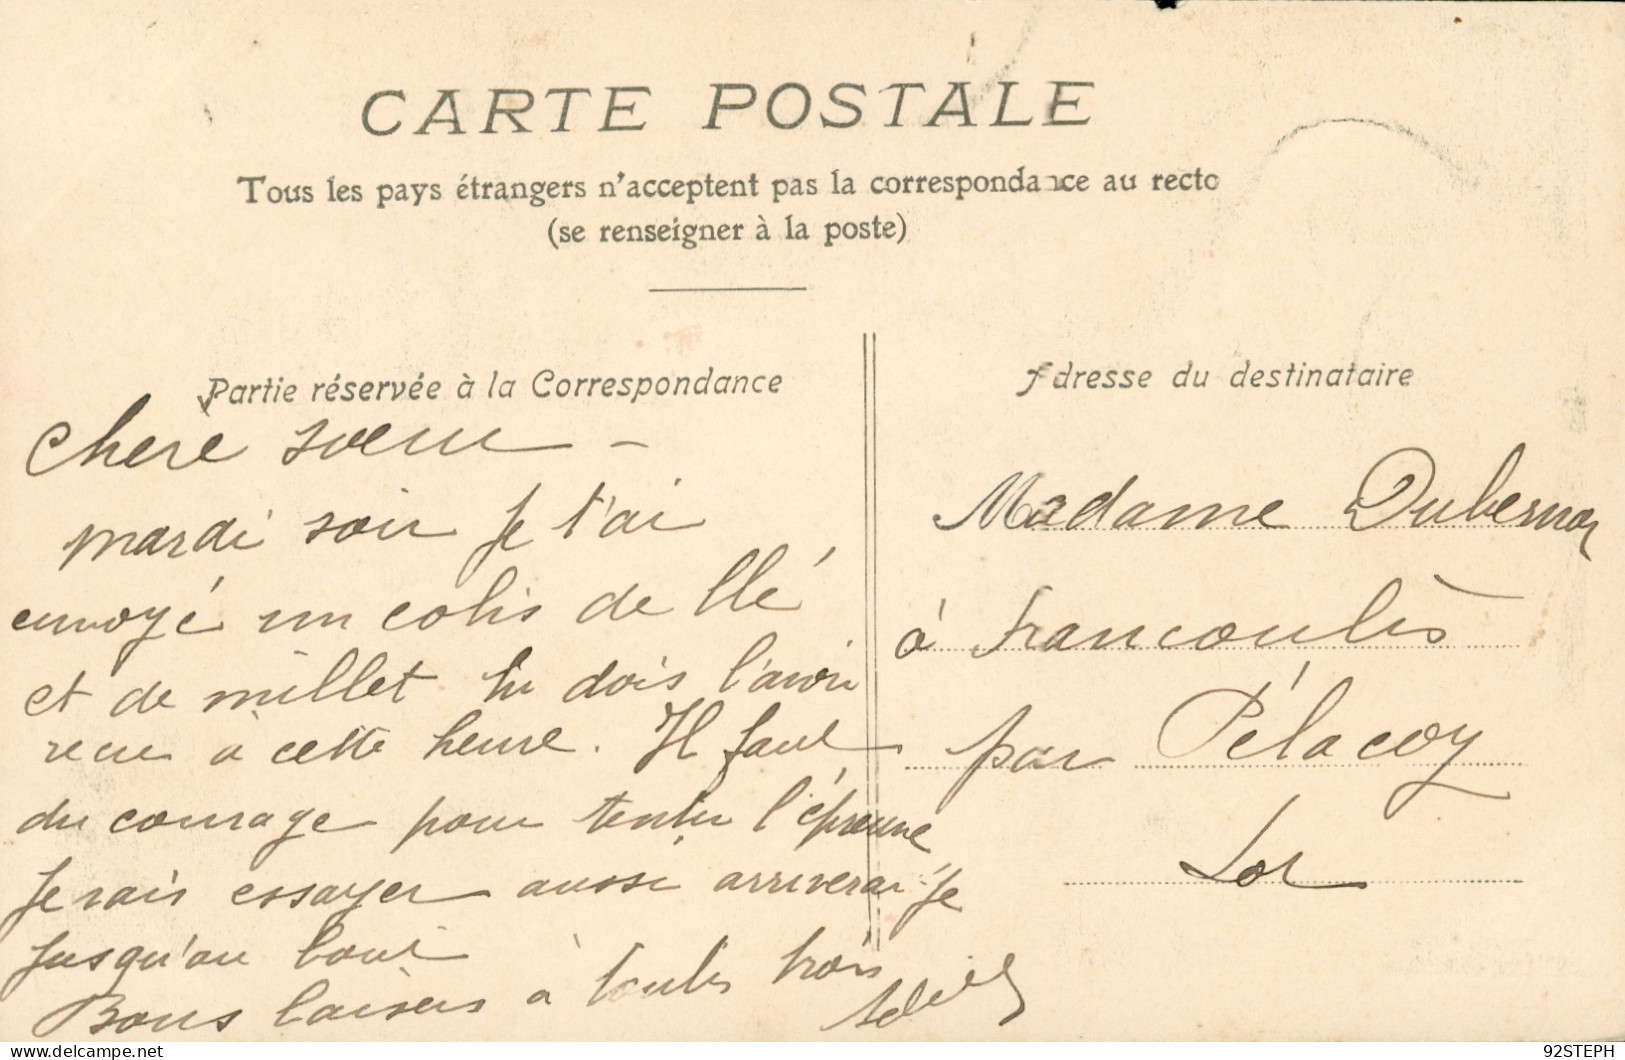 CARTE POSTALE
Tous les pays étrangers n'acceptent pas la correspondance au recto
(se renseigner à la poste)
Partie réservée à la Correspondance
Adresse du destinataire
Chere soeur –
mardi soir je t'ai
envoyé un colis de blé
et de millet tu dois l'avoir
recu à cette heure. Il faut
du courage pour tenter l'épreuve
Je vais essayer aussi arriverai-je
jusqu'au bout
Bons baisers à toutes trois
Madame Dubernoy
à Francoulès
par Pélacoy
Lot
delcampe.net
92STEPH